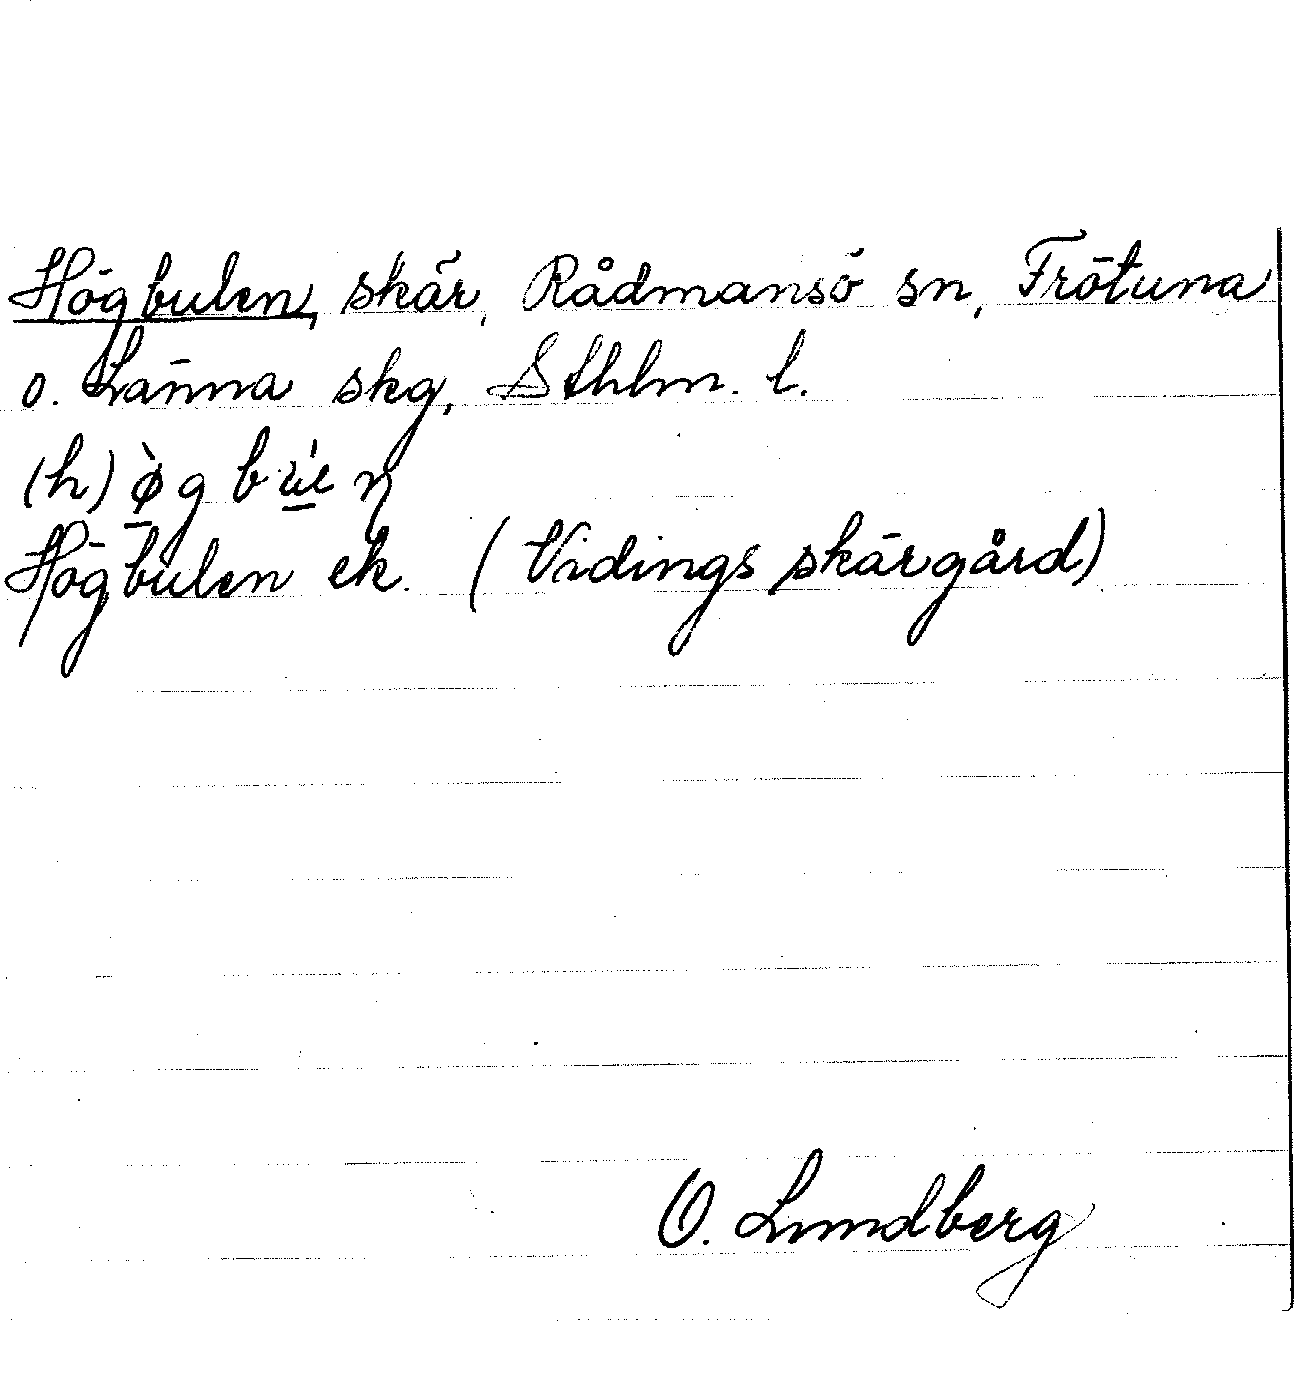 Högbulen, skär, Rådmansö sn, Frötuna
o. Länna skg, Sthlm. l.
(h)ø̀g b
Högbulen ek. (Vidings skärgård)
O. Lundberg